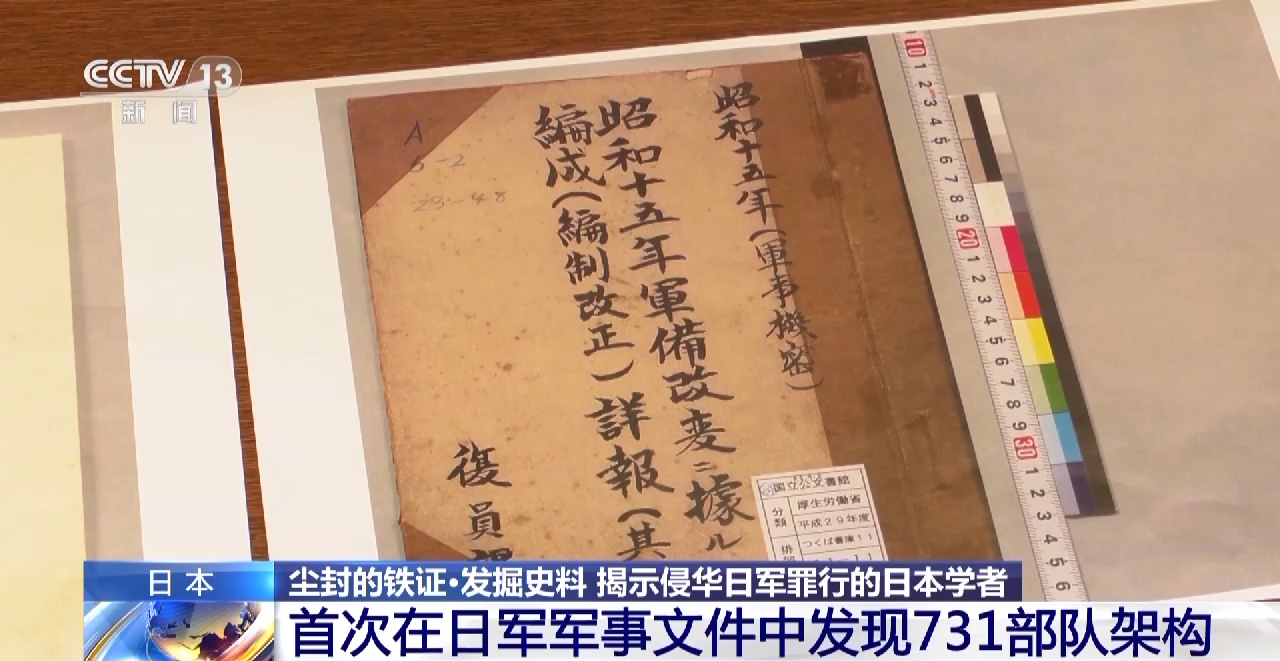 CCTV 13
新闻
昭和十五年（軍事機密）
昭和十五年軍備改変ニ據ル
編成（編制改正）詳報（其
復員課
A
6-2
23-48
10 1 2 3 4 5 6 7 8 9 20 1 2 3 4 5 6 7 8 9 30 1 2 3 4 5 6
国立公文書館
分類
厚生労働省
平成29年度
つくば書庫11
排架
日本
尘封的铁证·发掘史料 揭示侵华日军罪行的日本学者
首次在日军军事文件中发现731部队架构